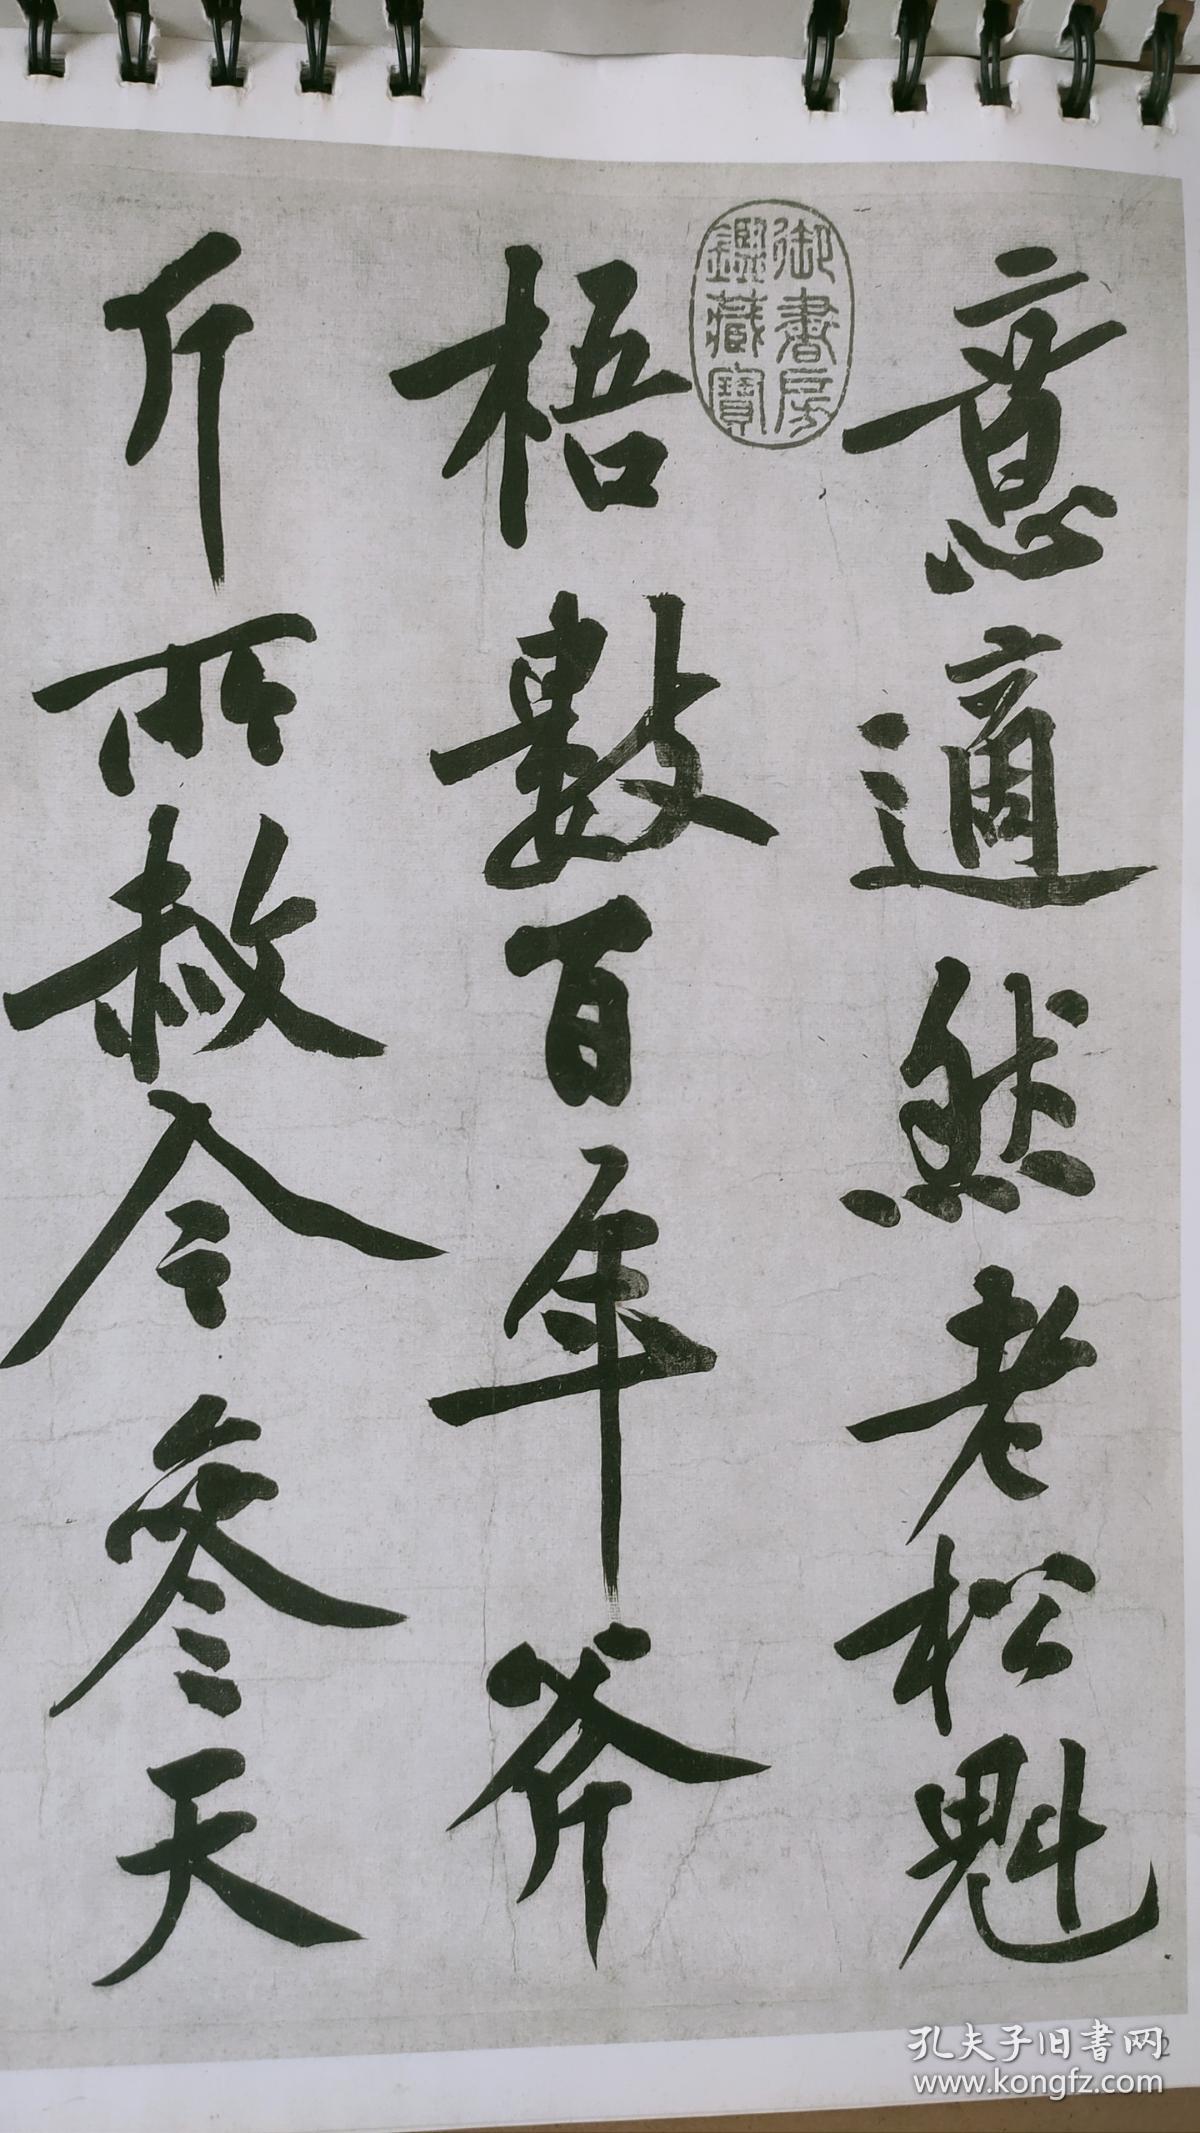 意適然老松魁
梧數百年斧
斤所赦今參天
御書房
鑑藏寶
2
孔夫子旧书网
www.kongfz.com